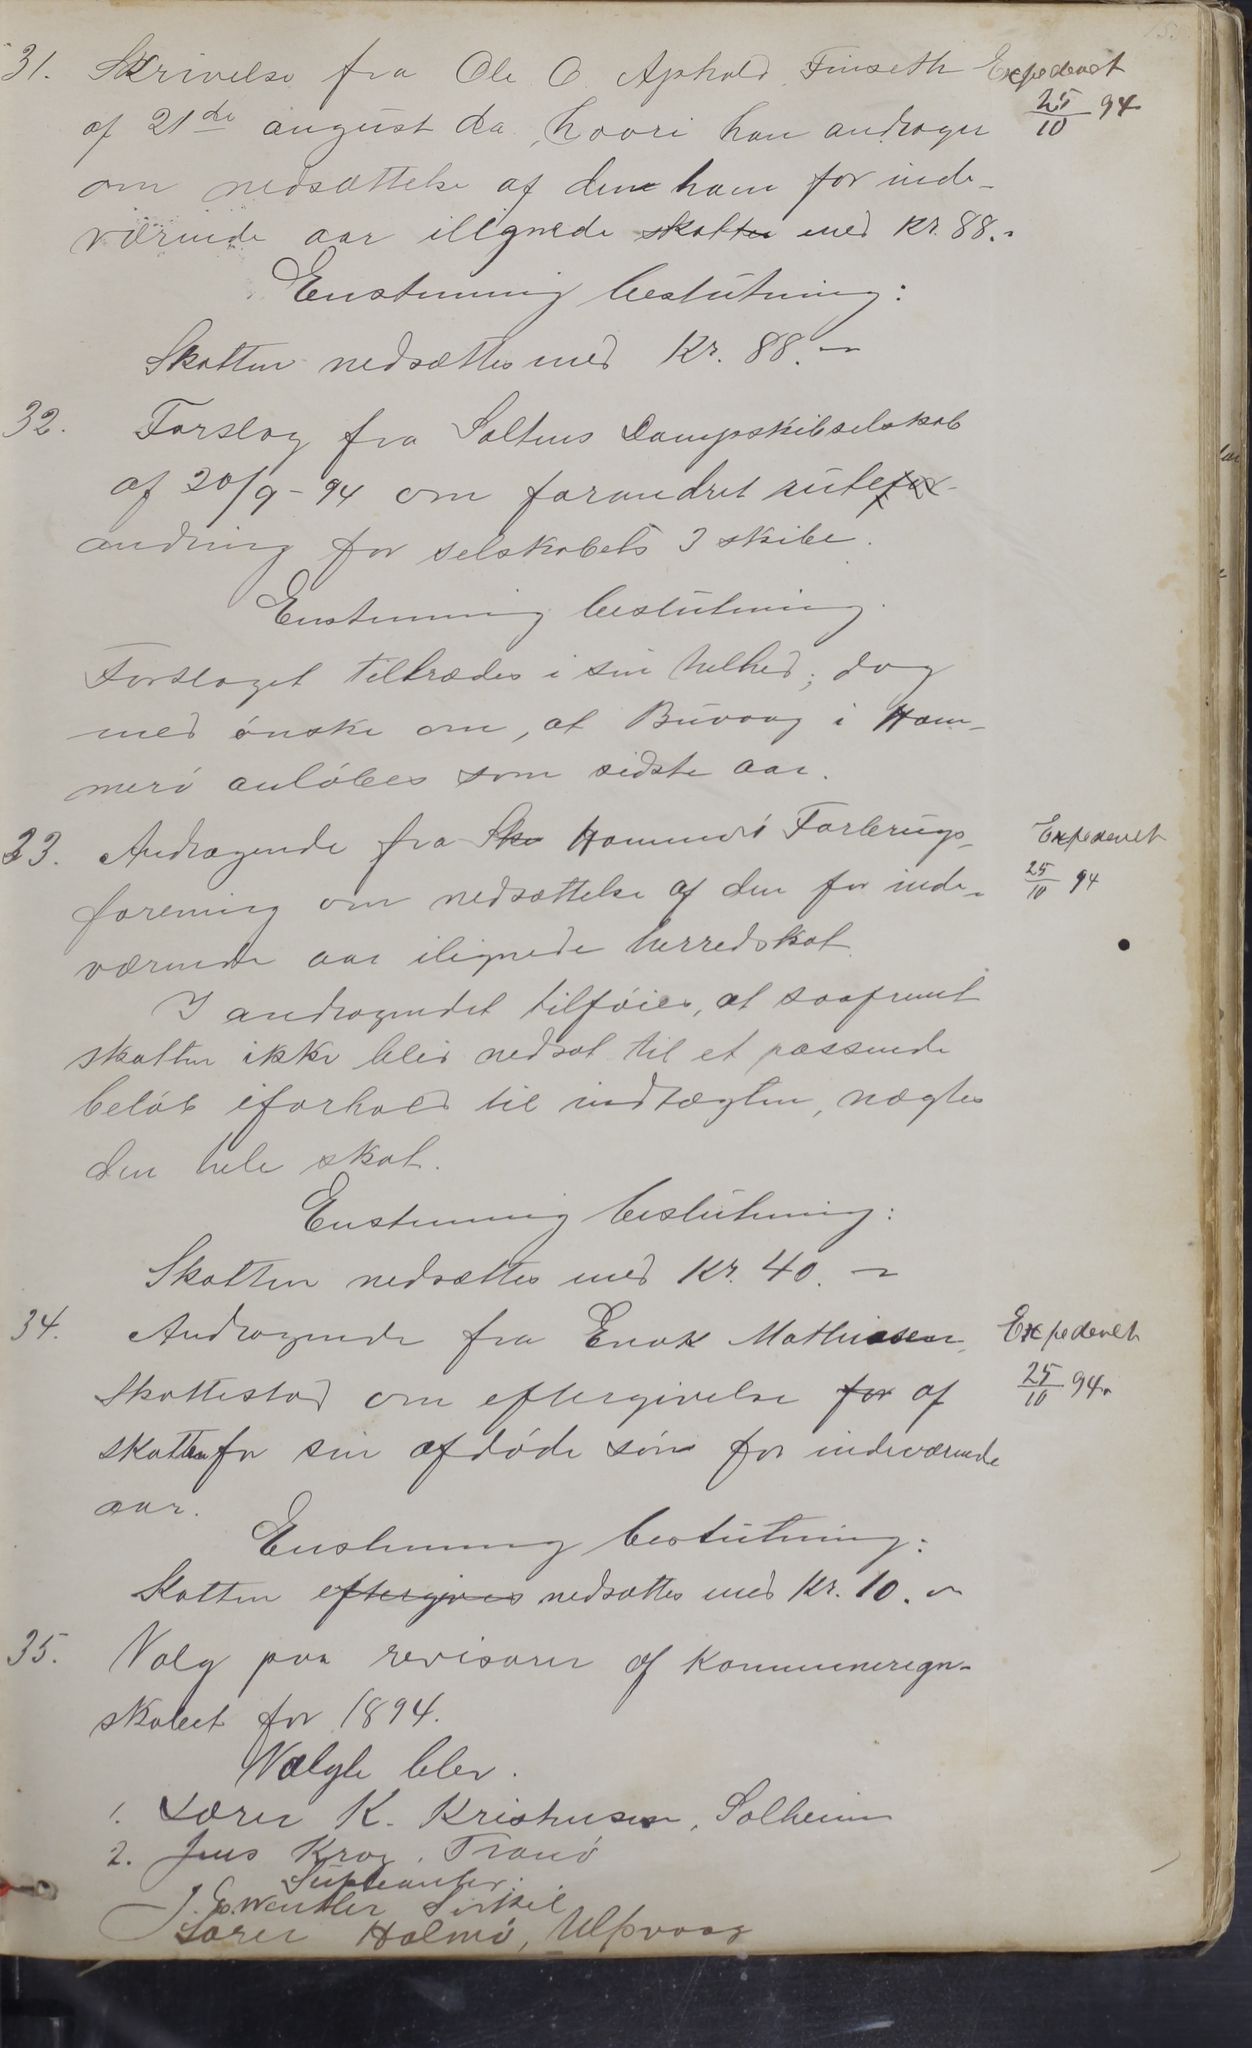 31. Skrivelse fra Ole O. Aphold Finseth Expederet
af 21de august da, hvori han andrager 25/10 94
om nedsættelse af den ham for inde-
værende aar illignede skatten med Kr. 88.-
Enstemmig beslutning:
Skatten nedsættes med Kr. 88.-
32. Forslag fra Saltens Dampskibselskab
af 20/9-94 om forandret rutefor-
andring for selskabets 3 skibe.
Enstemmig beslutning.
Forslaget tiltrædes i sin helhed; dog
med ønske om, at Buvaag i Ham-
merø anløbes som sidste aar.
33. Andragende fra Ska Hammerø Forbrugs- Expederet
forening om nedsættelse af den for inde- 25/10 94
værende aar ilignede herredskat.
I andragendet tilføies, at saafremt
skatten ikke blir nedsat til et passende
beløb iforhold til indtægten, nægtes
den hele skat.
Enstemmig beslutning:
Skatten nedsættes med Kr. 40.-
34. Andragende fra Enok Mathiasen, Expederet
Skottestad om eftergivelse for af 25/10 94.
skatten for sin afdøde søn for indeværende
aar.
Enstemmig beslutning:
Skatten eftergives nedsættes med Kr. 10.-
35. Valg paa revisorer af kommuneregn-
skabet for 1894.
Valgte blev.
1. Lærer K. Kristensen, Solheim
2. Jens Krog, Tranø
Supleanter.
J. Ewentler
Lærer Holmø, Ulpvaag